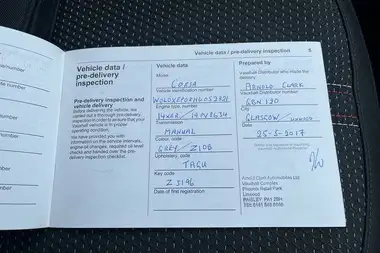 Vehicle data / pre-delivery inspection 5
Vehicle data /
pre-delivery
inspection
Pre-delivery inspection and
vehicle delivery
Before delivering the vehicle, we
carried out a thorough pre-delivery
inspection in order to ensure that your
Vauxhall vehicle is in proper
operating condition.
We have provided you with
information on the service intervals,
engine oil changes, required oil level
checks and handed over the pre-
delivery inspection checklist.
Vehicle data
Model
CORSA
Vehicle identification number
Engine type, number
Transmission
MANUAL
Colour, code
GREY / Z10B
Upholstery, code
TAGU
Key code
Z3196
Date of first registration
Prepared by
Vauxhall Distributor who made the
delivery
ARNOLD CLARK
Vauxhall Distributor number
City
GLASGOW
Date
25-5-2017
Arnold Clark Automobiles Ltd
Vauxhall Complex
Phoenix Retail Park
Linwood
PAISLEY PA1 2BH
number
number